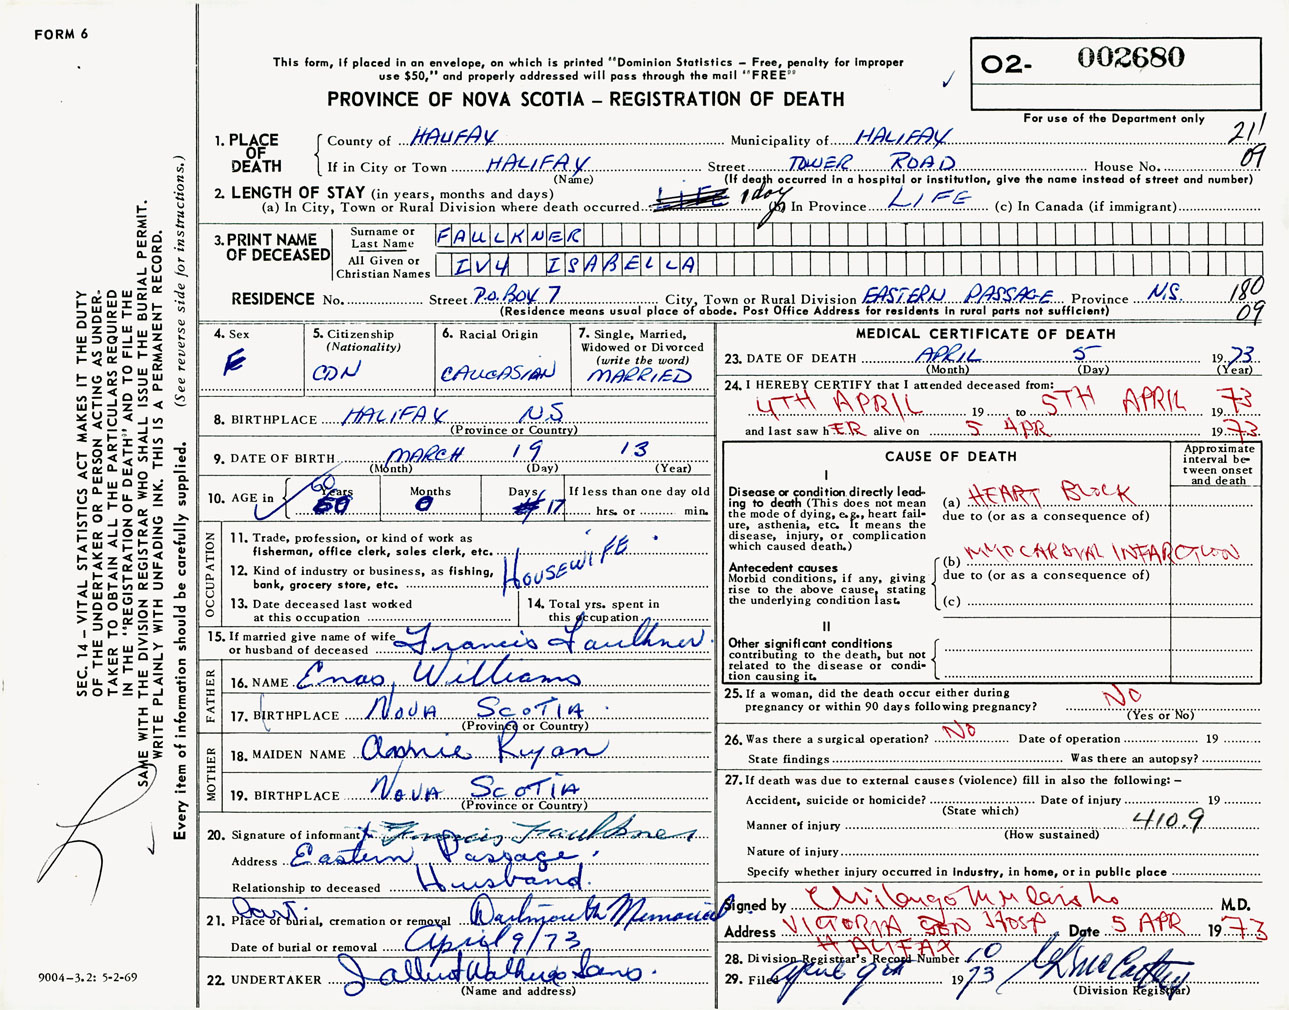 FORM 6
This form, if placed in an envelope, on which is printed "Dominion Statistics – Free, penalty for improper
use $50," and properly addressed will pass through the mail "FREE"
PROVINCE OF NOVA SCOTIA – REGISTRATION OF DEATH
02- 002680
For use of the Department only
211
09
1. PLACE OF DEATH
County of HALIFAX Municipality of HALIFAX
If in City or Town HALIFAX Street TOWER ROAD House No.
(Name) (If death occurred in a hospital or institution, give the name instead of street and number)
2. LENGTH OF STAY (in years, months and days)
(a) In City, Town or Rural Division where death occurred LIFE 1 day (b) In Province LIFE (c) In Canada (if immigrant)
3. PRINT NAME OF DECEASED
Surname or Last Name FAULKNER
All Given or Christian Names IVY ISABELLA
RESIDENCE No. Street P.O. BOX 7 City, Town or Rural Division EASTERN PASSAGE Province N.S. 180
(Residence means usual place of abode. Post Office Address for residents in rural parts not sufficient) 09
4. Sex
F
5. Citizenship
(Nationality)
CDN
6. Racial Origin
CAUCASIAN
7. Single, Married,
Widowed or Divorced
(write the word)
MARRIED
8. BIRTHPLACE HALIFAX N.S
(Province or Country)
9. DATE OF BIRTH MARCH 19 13
(Month) (Day) (Year)
10. AGE in 60 Years Months Days If less than one day old
60 0 17 hrs. or min.
OCCUPATION
11. Trade, profession, or kind of work as
fisherman, office clerk, sales clerk, etc.
12. Kind of industry or business, as fishing,
bank, grocery store, etc.
HOUSEWIFE
13. Date deceased last worked
at this occupation
14. Total yrs. spent in
this occupation
15. If married give name of wife
or husband of deceased Francis Faulkner
FATHER
16. NAME Enas Williams
17. BIRTHPLACE NOVA SCOTIA
(Province or Country)
MOTHER
18. MAIDEN NAME Annie Ryan
19. BIRTHPLACE NOVA SCOTIA
(Province or Country)
20. Signature of informant x Francis Faulkner
Address Eastern Passage
Relationship to deceased Husband
21. Place of burial, cremation or removal Dartmouth Memorial
Date of burial or removal April 9/73
22. UNDERTAKER
(Name and address)
MEDICAL CERTIFICATE OF DEATH
23. DATE OF DEATH APRIL 5 1973
(Month) (Day) (Year)
24. I HEREBY CERTIFY that I attended deceased from:
4TH APRIL 19 to 5TH APRIL 1973
and last saw hER alive on 5 APR 1973
CAUSE OF DEATH
Approximate
interval be-
tween onset
and death
I
Disease or condition directly lead-
ing to death (This does not mean
the mode of dying, e.g., heart fail-
ure, asthenia, etc. It means the
disease, injury, or complication
which caused death.)
(a) HEART BLOCK
due to (or as a consequence of)
Antecedent causes
Morbid conditions, if any, giving
rise to the above cause, stating
the underlying condition last.
(b) MYOCARDIAL INFARCTION
due to (or as a consequence of)
(c)
II
Other significant conditions
contributing to the death, but not
related to the disease or condi-
tion causing it.
25. If a woman, did the death occur either during
pregnancy or within 90 days following pregnancy? NO
(Yes or No)
26. Was there a surgical operation? NO Date of operation 19
State findings Was there an autopsy?
27. If death was due to external causes (violence) fill in also the following: –
Accident, suicide or homicide? Date of injury 19
(State which)
Manner of injury 410.9
(How sustained)
Nature of injury
Specify whether injury occurred in Industry, in home, or in public place
Signed by M.D.
Address VICTORIA GEN HOSP Date 5 APR 1973
HALIFAX
28. Division Registrar's Record Number 10
29. Filed April 9th 1973
(Division Registrar)
SEC. 14 – VITAL STATISTICS ACT MAKES IT THE DUTY
OF THE UNDERTAKER OR PERSON ACTING AS UNDER-
TAKER TO OBTAIN ALL THE PARTICULARS REQUIRED
IN THE "REGISTRATION OF DEATH" AND TO FILE THE
SAME WITH THE DIVISION REGISTRAR WHO SHALL ISSUE THE BURIAL PERMIT.
WRITE PLAINLY WITH UNFADING INK. THIS IS A PERMANENT RECORD.
Every item of information should be carefully supplied. (See reverse side for instructions.)
9004-3.2: 5-2-69